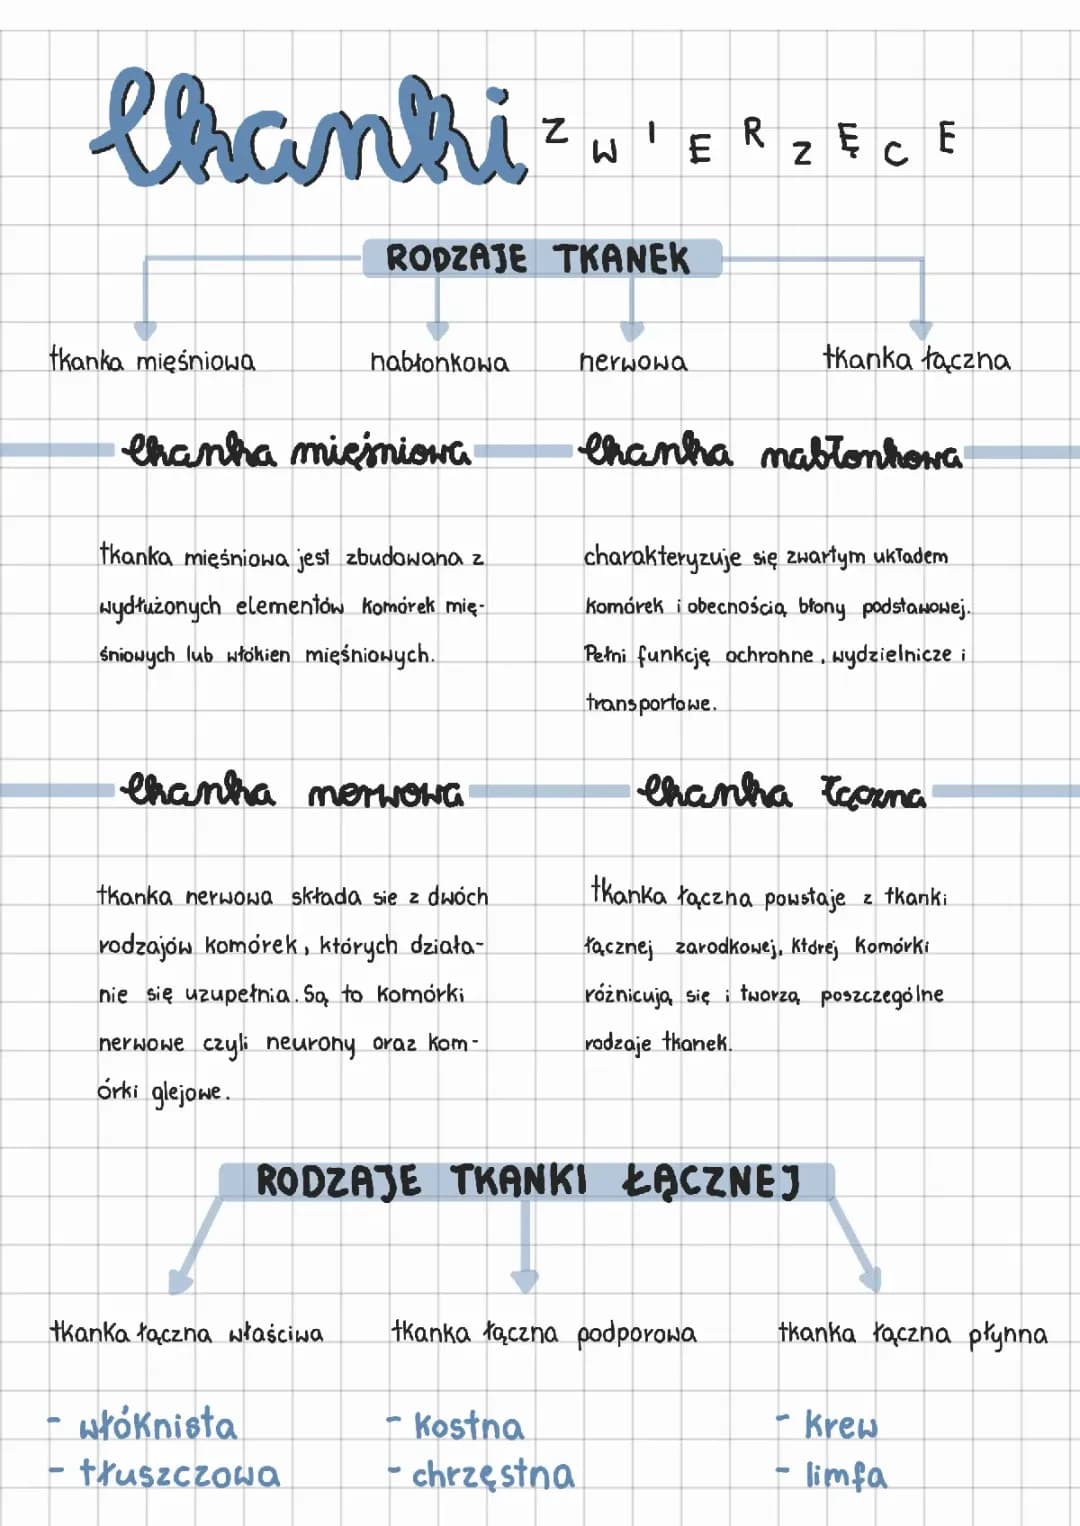 tkanki ZWIERZĘCE
RODZAJE TKANEK
tkanka mięśniowa nabłonkowa nerwowa tkanka łączna
tkanka mięśniowa
tkanka mięśniowa jest zbudowana z
wydłużonych elementów komórek mię-
śniowych lub włókien mięśniowych.
tkanka nabłonkowa
charakteryzuje się zwartym układem
komórek i obecnością błony podstawowej.
Pełni funkcję ochronne, wydzielnicze i
transportowe.
tkanka nerwowa
tkanka nerwowa składa sie z dwóch
rodzajów komórek, których działa-
nie się uzupełnia. Są to komórki
nerwowe czyli neurony oraz kom-
órki glejowe.
tkanka łączna
tkanka łączna powstaje z tkanki
łącznej zarodkowej, której komórki
różnicują się i tworzą poszczególne
rodzaje tkanek.
RODZAJE TKANKI ŁĄCZNEJ
tkanka łączna właściwa tkanka łączna podporowa tkanka łączna płynna
- włóknista - kostna - krew
- tłuszczowa - chrzęstna - limfa